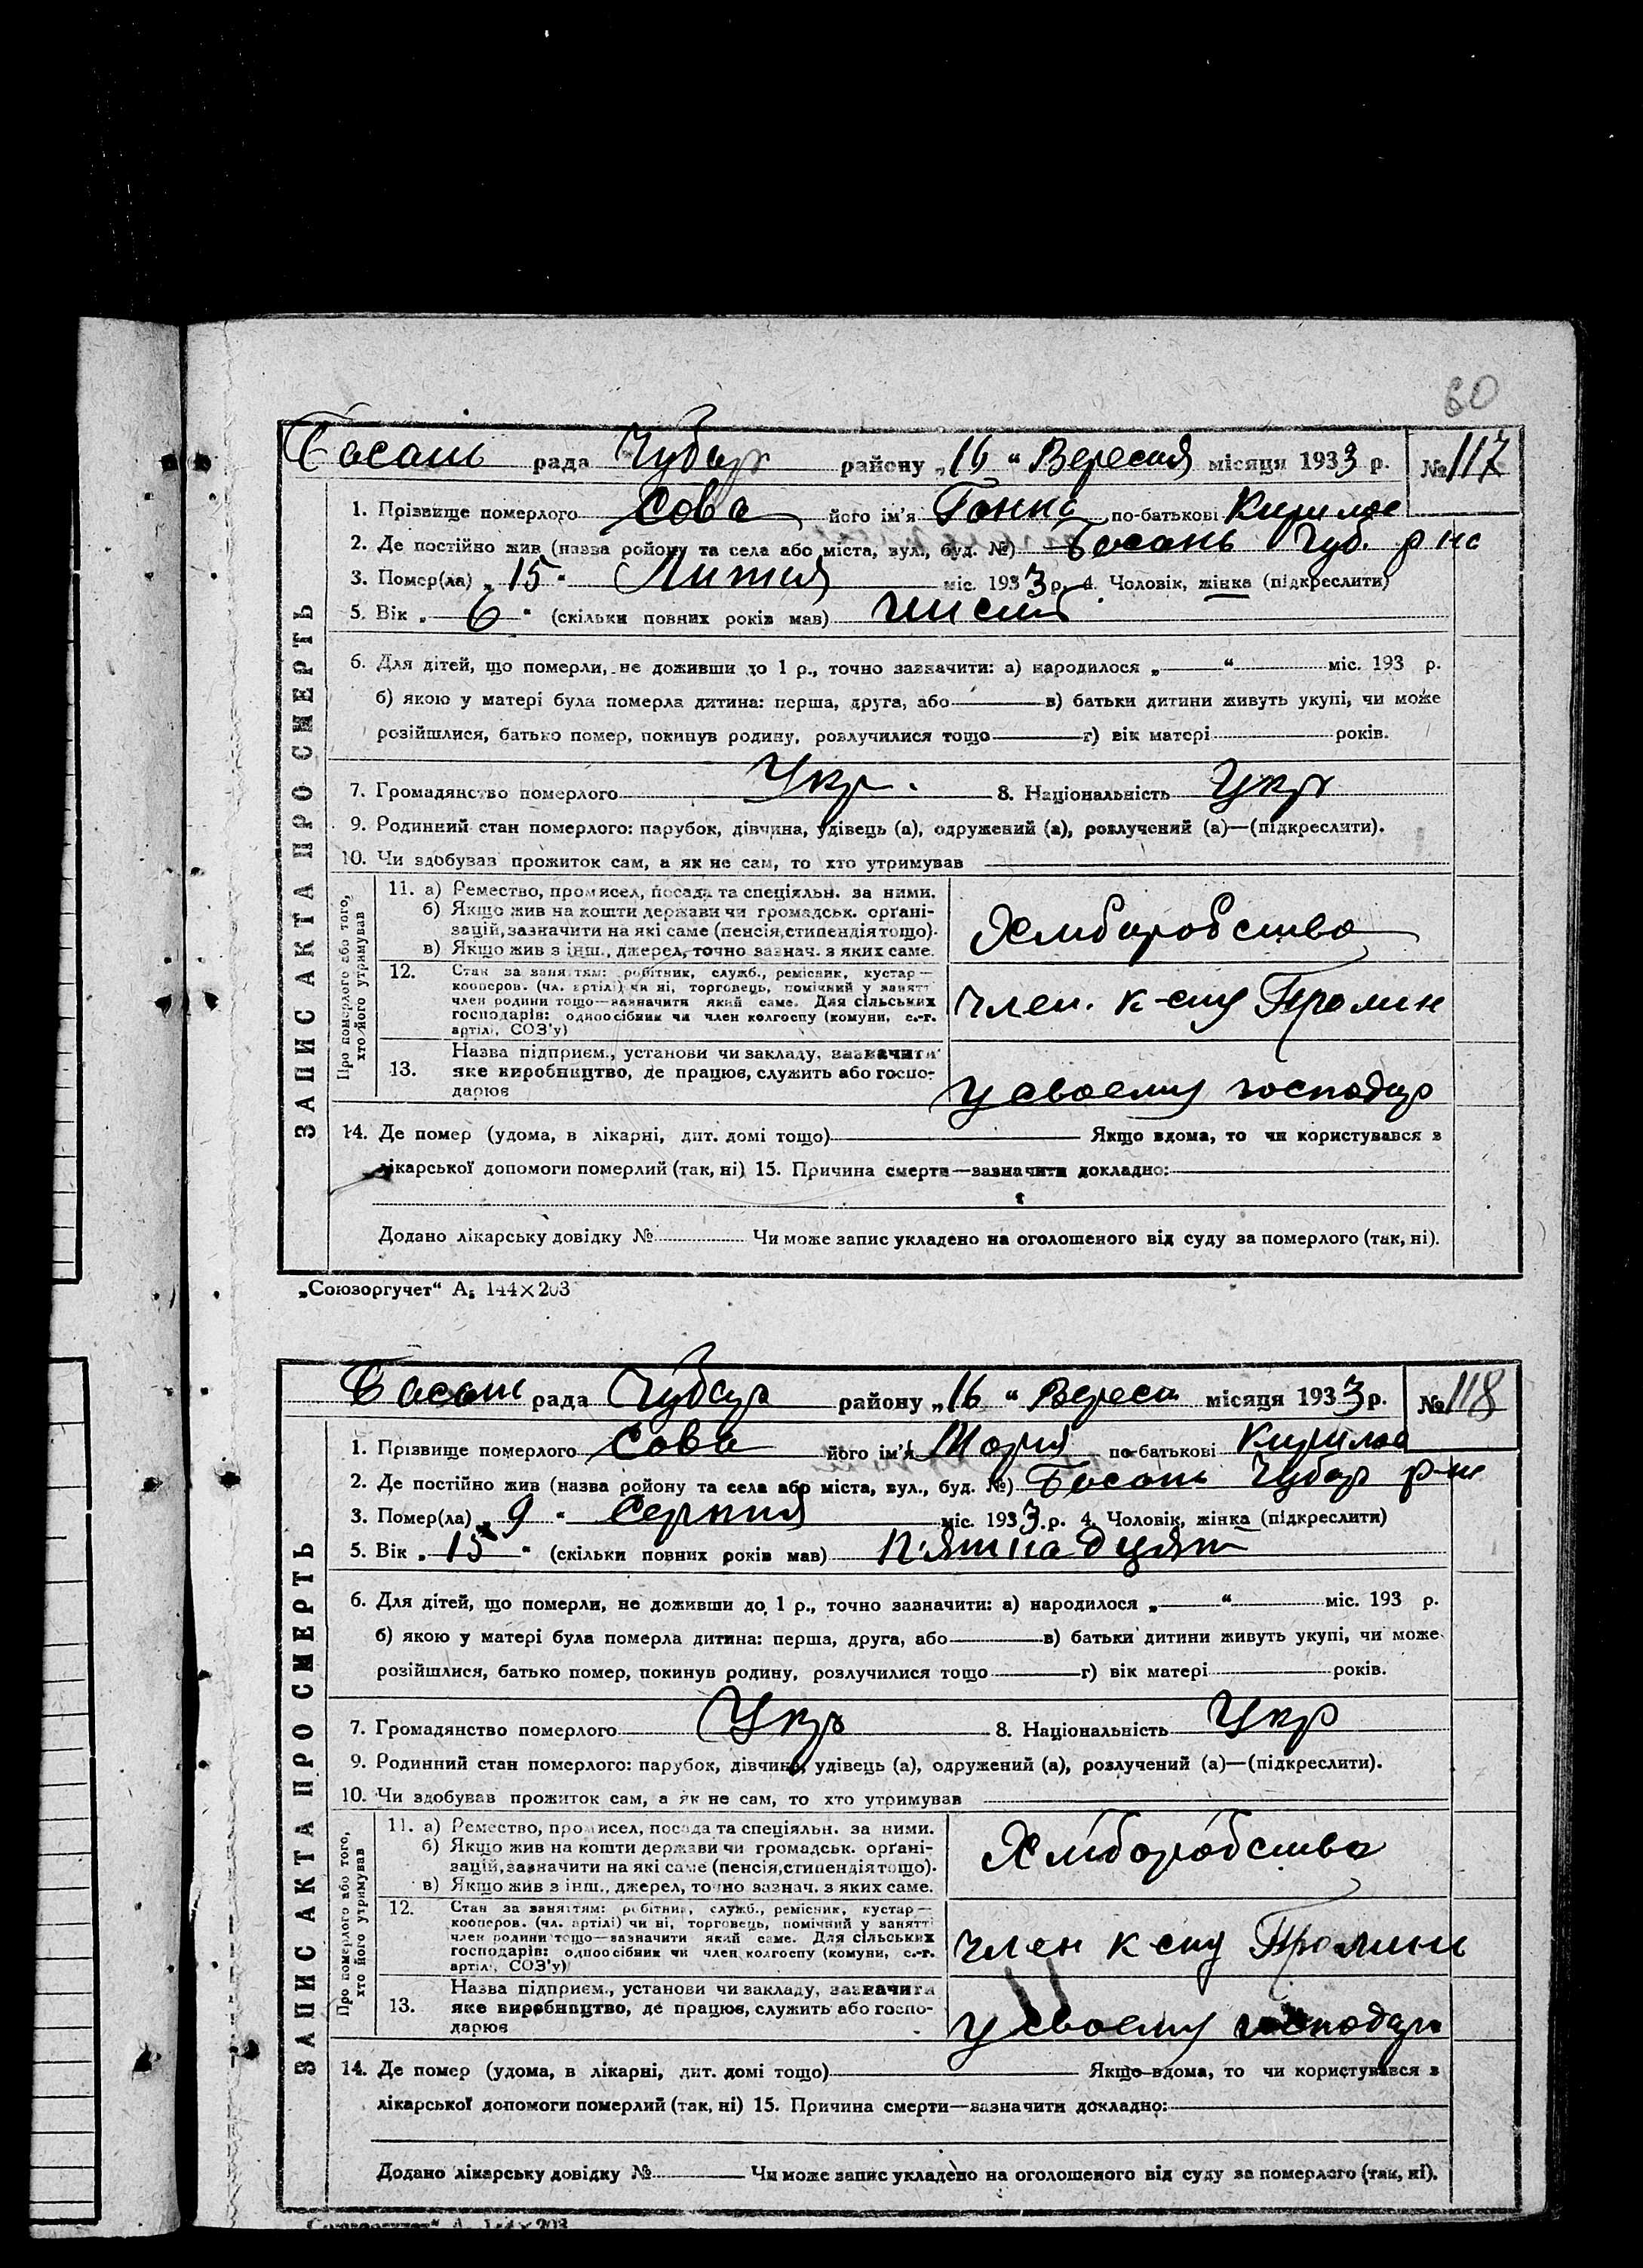 60
Басань рада Чубар району „16“ Вересня місяця 1933 р. № 117
1. Прізвище померлого Сова його ім'я Ганна по-батькові Кирилов
2. Де постійно жив (назва ройону та села або міста, вул., буд. №) Басань Чуб. р на
3. Помер(ла) „15“ Липня міс. 1933 р. 4. Чоловік, жінка (підкреслити)
5. Вік „6“ (скільки повних років мав) шисть
6. Для дітей, що померли, не доживши до 1 р., точно зазначити: а) народилося „ “ міс. 193 р.
б) якою у матері була померла дитина: перша, друга, або в) батьки дитини живуть укупі, чи може
розійшлися, батько помер, покинув родину, розлучилися тощо г) вік матері років.
7. Громадянство померлого Укр. 8. Національність Укр
9. Родинний стан померлого: парубок, дівчина, удівець (а), одружений (а), розлучений (а)—(підкреслити).
10. Чи здобував прожиток сам, а як не сам, то хто утримував
ЗАПИС АКТА ПРО СМЕРТЬ
Про померлого або того,
хто його утримував
11. а) Ремество, промисел, посада та спеціяльн. за ними.
б) Якщо жив на кошти держави чи громадськ. органі-
зацій, зазначити на які саме (пенсія, стипендія тощо).
в) Якщо жив з інш., джерел, точно зазнач. з яких саме.
Хлиборобство
12. Стан за заняттям: робітник, служб., ремісник, кустар—
кооперов. (чл. артілі) чи ні, торговець, помічний у занятті
член родини тощо—зазначити який саме. Для сільських
господарів: одноосібник чи член колгоспу (комуни, с.-г.
артілі, СОЗ'у)
член. к-спу Промин
Назва підприєм., установи чи закладу, зазначити
13. яке виробництво, де працює, служить або госпо-
дарює
у своему господар
14. Де помер (удома, в лікарні, дит. домі тощо) Якщо вдома, то чи користувався з
лікарської допомоги померлий (так, ні) 15. Причина смерти—зазначити докладно:
Додано лікарську довідку № Чи може запис укладено на оголошеного від суду за померлого (так, ні).
„Союзоргучет“ А₅ 144×203
Басань рада Чубар району „16“ Вересн місяця 1933 р. № 118
1. Прізвище померлого Сова його ім'я Мария по-батькові Кирилов
2. Де постійно жив (назва ройону та села або міста, вул., буд. №) Басань Чубар р-на
3. Помер(ла) „9“ Серпня міс. 1933 р. 4. Чоловік, жінка (підкреслити)
5. Вік „15“ (скільки повних років мав) п'ятнадцят
6. Для дітей, що померли, не доживши до 1 р., точно зазначити: а) народилося „ “ міс. 193 р.
б) якою у матері була померла дитина: перша, друга, або в) батьки дитини живуть укупі, чи може
розійшлися, батько помер, покинув родину, розлучилися тощо г) вік матері років.
7. Громадянство померлого Укр 8. Національність Укр
9. Родинний стан померлого: парубок, дівчина, удівець (а), одружений (а), розлучений (а)—(підкреслити).
10. Чи здобував прожиток сам, а як не сам, то хто утримував
ЗАПИС АКТА ПРО СМЕРТЬ
Про померлого або того,
хто його утримував
11. а) Ремество, промисел, посада та спеціяльн. за ними.
б) Якщо жив на кошти держави чи громадськ. органі-
зацій, зазначити на які саме (пенсія, стипендія тощо).
в) Якщо жив з інш., джерел, точно зазнач. з яких саме.
Хлиборобство
12. Стан за заняттям: робітник, служб., ремісник, кустар—
кооперов. (чл. артілі) чи ні, торговець, помічний у занятті
член родини тощо—зазначити який саме. Для сільських
господарів: одноосібник чи член колгоспу (комуни, с.-г.
артілі, СОЗ'у)
член к спу Промин
Назва підприєм., установи чи закладу, зазначити
13. яке виробництво, де працює, служить або госпо-
дарює
у своему господар
14. Де помер (удома, в лікарні, дит. домі тощо) Якщо вдома, то чи користувався з
лікарської допомоги померлий (так, ні) 15. Причина смерти—зазначити докладно:
Додано лікарську довідку № Чи може запис укладено на оголошеного від суду за померлого (так, ні).
„Союзоргучет“ А₅ 144×203